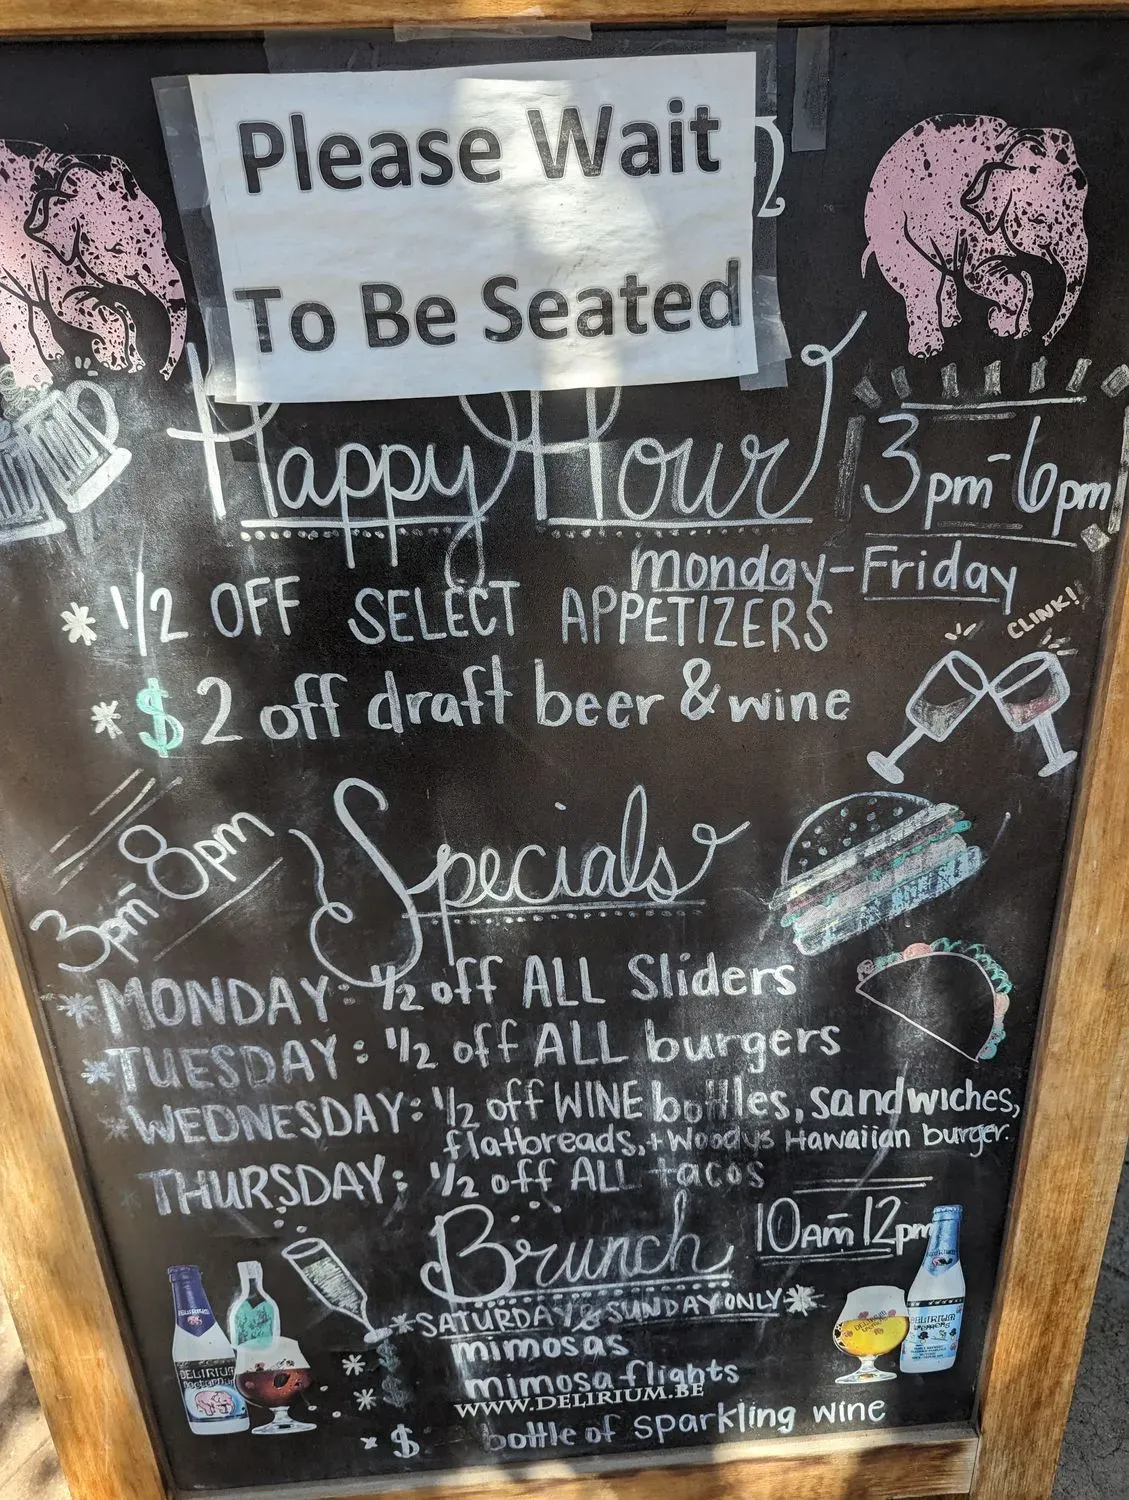 Please Wait
To Be Seated
Happy Hour
3pm-6pm
monday-Friday
* 1/2 OFF SELECT APPETIZERS
CLINK!
* $2 off draft beer & wine
3pm-8pm
Specials
* MONDAY: 1/2 off ALL Sliders
* TUESDAY: 1/2 off ALL burgers
* WEDNESDAY: 1/2 off WINE bottles, sandwiches,
flatbreads, + Woodys Hawaiian burger.
THURSDAY: 1/2 off ALL tacos
Brunch 10AM-12pm
*SATURDAY & SUNDAY ONLY*
* mimosas
* mimosa flights
WWW.DELIRIUM.BE
* $ bottle of sparkling wine
DELIRIUM
DELIRIUM